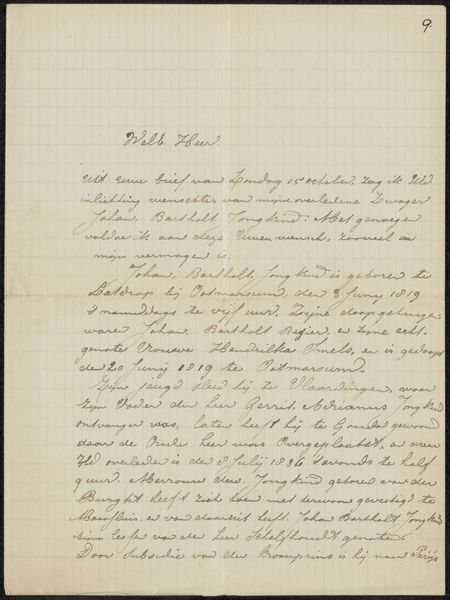 9.
Welb. Heer.
Uit uwe brief van Zondag 15 october, zag ik Uld
inlichting wenschte, van mijne overledene Zwager
Johan, Bartholt Jongkind. Met genoegen
voldoe ik aan deze Uwen wensch, zooveel in
mijn vermogen is.
Johan, Bartholt, Jongkind is geboren te
Latdrop bij Ootmarsum, den 3 Juny 1819
's namiddags te vijf uur. Zijne doopgetuigen
waren Johan, Bartholt Begier, en zijne echt-
genote Vrouwe Hendrika Smels, en is gedoopt
den 20 Junij 1819 te Ootmarsum.
Zijn jeugd sleed hij te Vlaardingen, waar
zijn Vader den heer Gerrit, Adrianus Jongkind
ontvanger was, later heeft hij te Gouda gewoond
daar de Oude heer was Overgeplaatst, en weer
Zld overleden is den 8 Julij 1836 's avonds te half
9 uur. Mevrouw dew. Jongkind geboren van der
Burght heeft zich toen metterwoon gevestigd te
Maassluis, en van daaruit heeft Johan Bartholt Jongkind
zijne lessen van den heer Schelfhoudt genoten.
Door subsidie van den Kroonprins is hij naar Parijs